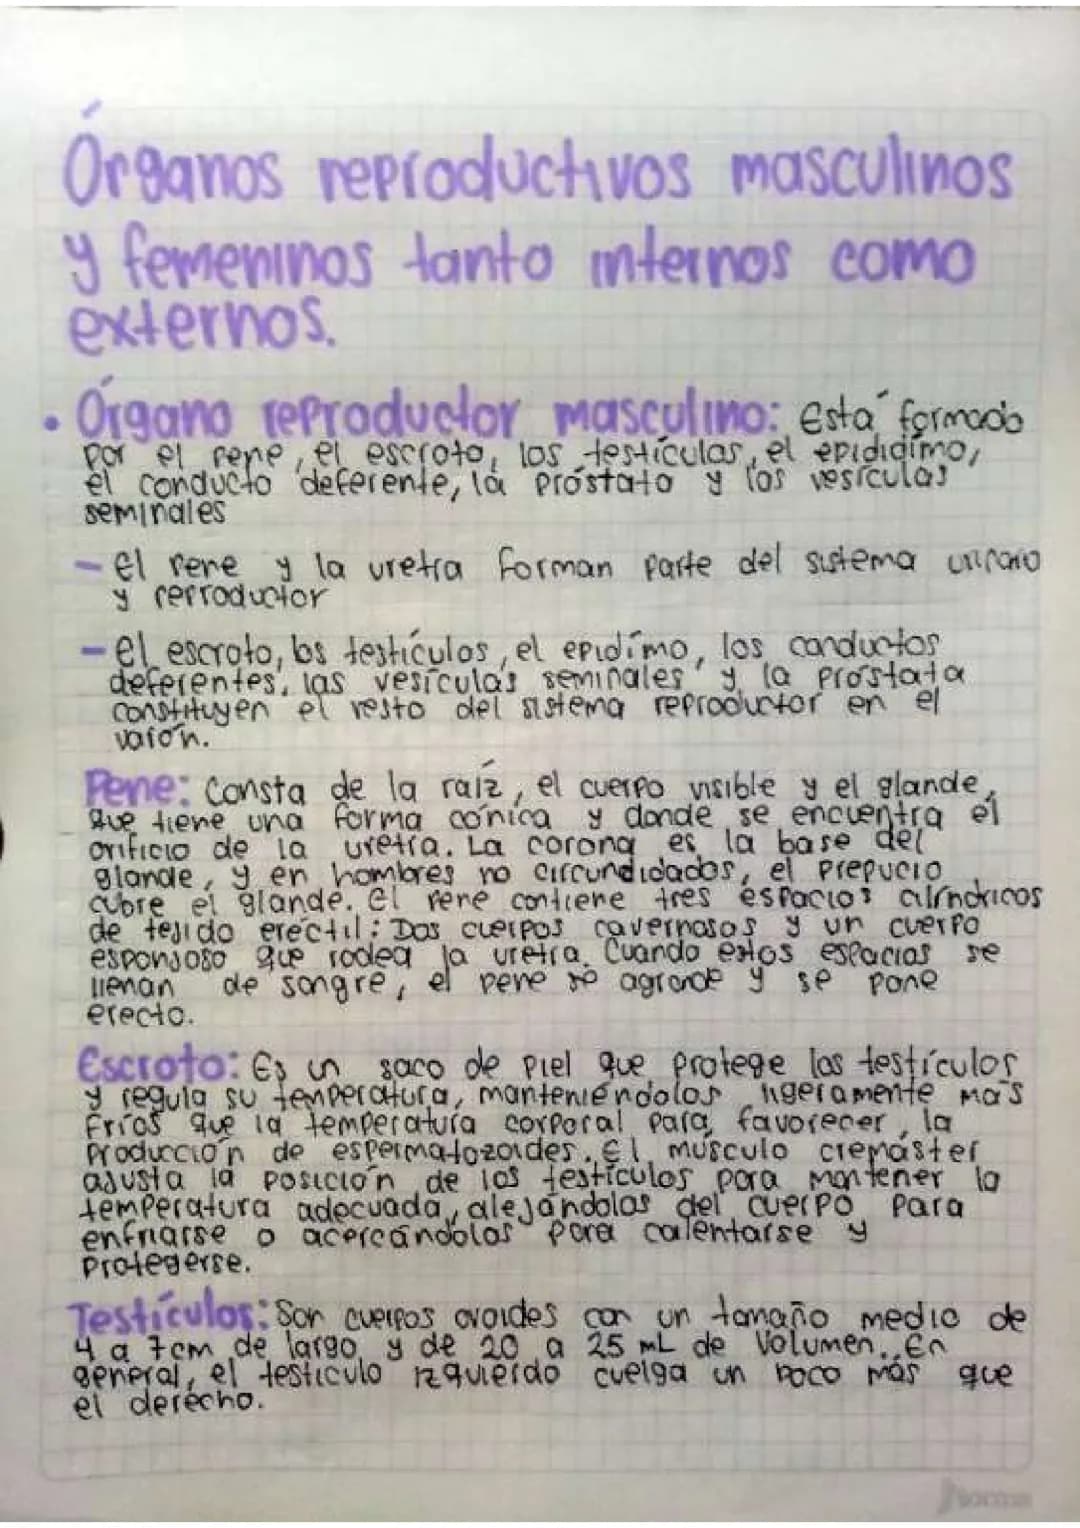 Órganos reproductivos masculinos
y femeninos tanto internos como
externos.
• Órgano reproductor masculino: Está formado
por el pene, el escroto, los testículos, el epididimo,
el conducto deferente, la próstata y las vesículas
seminales
- El pene y la uretra forman parte del sistema urinario
y reproductor
- El escroto, los testículos, el epidímo, los conductos
deferentes, las vesículas seminales y la próstata
constituyen el resto del sistema reproductor en el
varón.
Pene: Consta de la raíz, el cuerpo visible y el glande,
que tiene una forma cónica y donde se encuentra el
orificio de la uretra. La corona es la base del
glande, y en hombres no circundidados, el prepucio
cubre el glande. El pene contiene tres espacios cilíndricos
de tejido eréctil: Dos cuerpos cavernosos y un cuerpo
esponjoso que rodea la uretra. Cuando estos espacios se
llenan de sangre, el pene se agrande y se pone
erecto.
Escroto: Es un saco de piel que protege los testículos
y regula su temperatura, manteniéndolos ligeramente más
fríos que la temperatura corporal para favorecer la
producción de espermatozoides. El músculo cremáster
ajusta la posición de los testículos para mantener la
temperatura adecuada, alejándolos del cuerpo para
enfriarse o acercándolos para calentarse y
protegerse.
Testículos: Son cuerpos ovoides con un tamaño medio de
4 a 7cm de largo y de 20 a 25 mL de volumen. En
general, el testículo izquierdo cuelga un poco más que
el derecho.